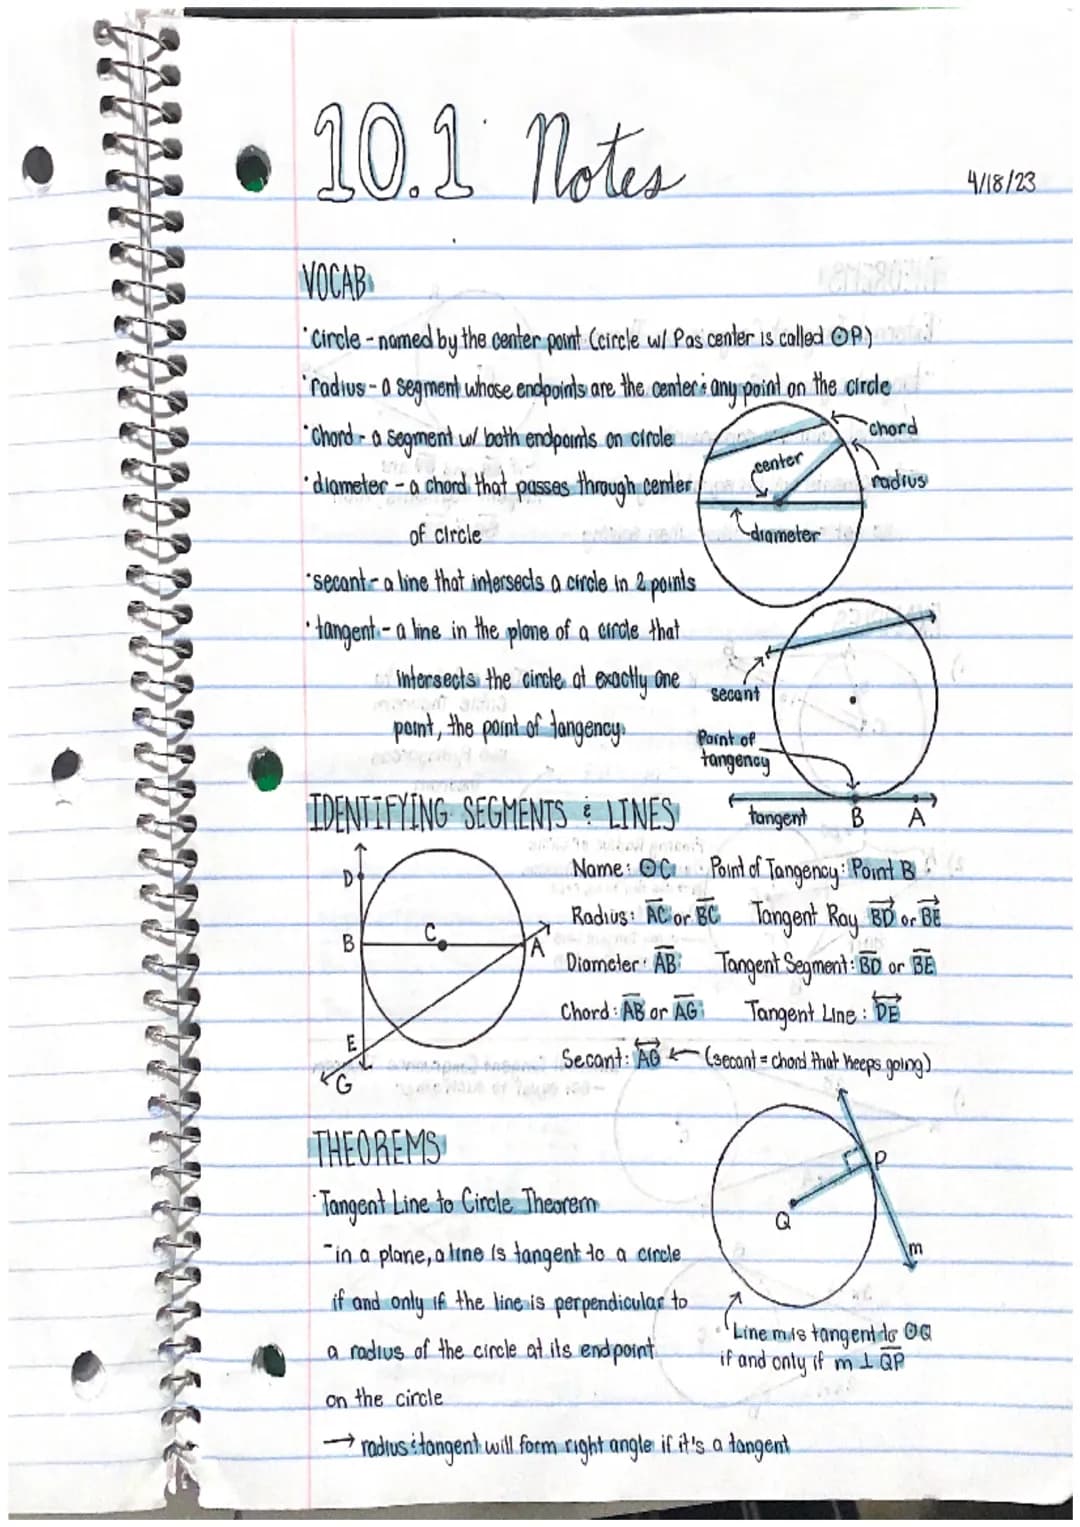 10.1 Notes
4/18/23
VOCAB
• circle - named by the center point (circle w/ P as center is called ⊙P)
• radius - a segment whose endpoints are the center & any point on the circle
• chord - a segment w/ both endpoints on circle
• diameter - a chord that passes through center
of circle
chord
center
radius
diameter
• secant - a line that intersects a circle in 2 points
• tangent - a line in the plane of a circle that
intersects the circle at exactly one
point, the point of tangency.
secant
Point of
tangency
tangent B A
IDENTIFYING SEGMENTS & LINES
D
B C A
E
G
Name: ⊙C Point of Tangency: Point B
Radius: A̅C̅ or B̅C̅ Tangent Ray BD→ or BE→
Diameter: A̅B̅ Tangent Segment: B̅D̅ or B̅E̅
Chord: A̅B̅ or A̅G̅ Tangent Line: DE↔
Secant: AG↔ ← (secant = chord that keeps going)
THEOREMS
• Tangent Line to Circle Theorem
- in a plane, a line is tangent to a circle
if and only if the line is perpendicular to
a radius of the circle at its endpoint
on the circle
→ radius & tangent will form right angle if it's a tangent
P
Q
m
Line m is tangent to ⊙Q
if and only if m ⊥ Q̅P̅